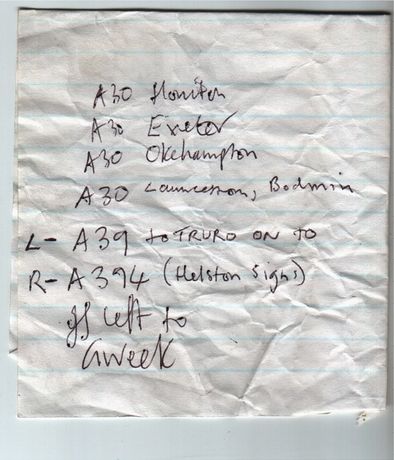 A30 Honiton
A30 Exeter
A30 Okehampton
A30 Launceston, Bodmin
L- A39 to TRURO ON TO
R- A394 (Helston Signs)
off left to
Gweek